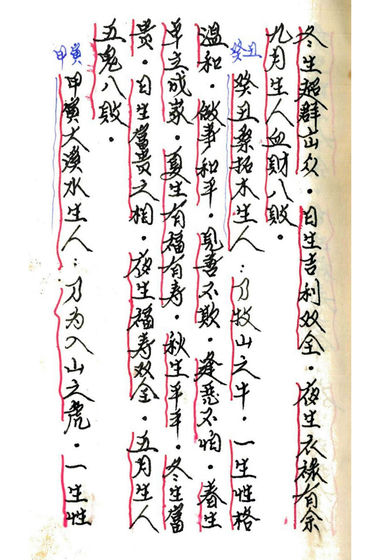 冬生超群出众．日生吉利双全．夜生衣禄有余
九月生人血財八敗．
癸丑
癸丑桑拓木生人：乃牧山之牛．一生性格
温和．做事和平．見善不欺．逢恶不怕．春生
单立成家．夏生有福有寿．秋生平平．冬生富
贵．日生富贵之相．夜生福寿双全．五月生人
五鬼八敗．
甲寅
甲寅大溪水生人：乃为入山之虎．一生性